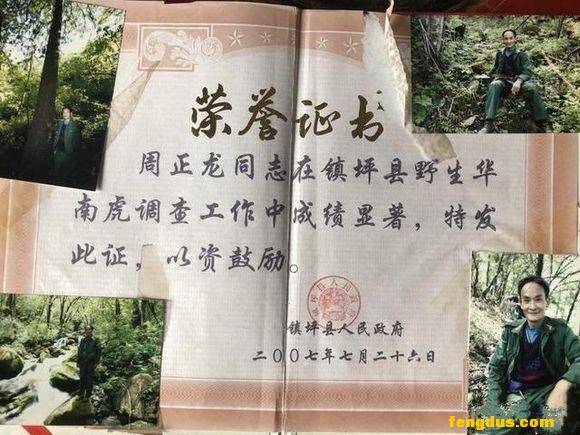 荣誉证书
周正龙同志在镇坪县野生华
南虎调查工作中成绩显著，特发
此证，以资鼓励。
镇坪县人民政府
二〇〇七年七月二十六日
fengdus.com